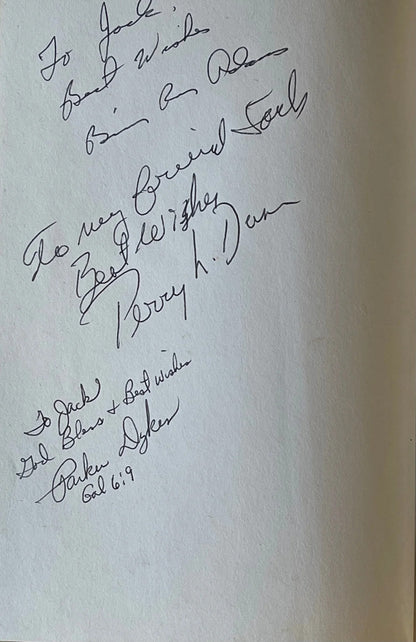 To Jack,
Best Wishes
Adams
To my friend Jack
Best Wishes
Perry L. Dunn
To Jack
God Bless + Best wishes
Parker Dykes
Gal 6:9